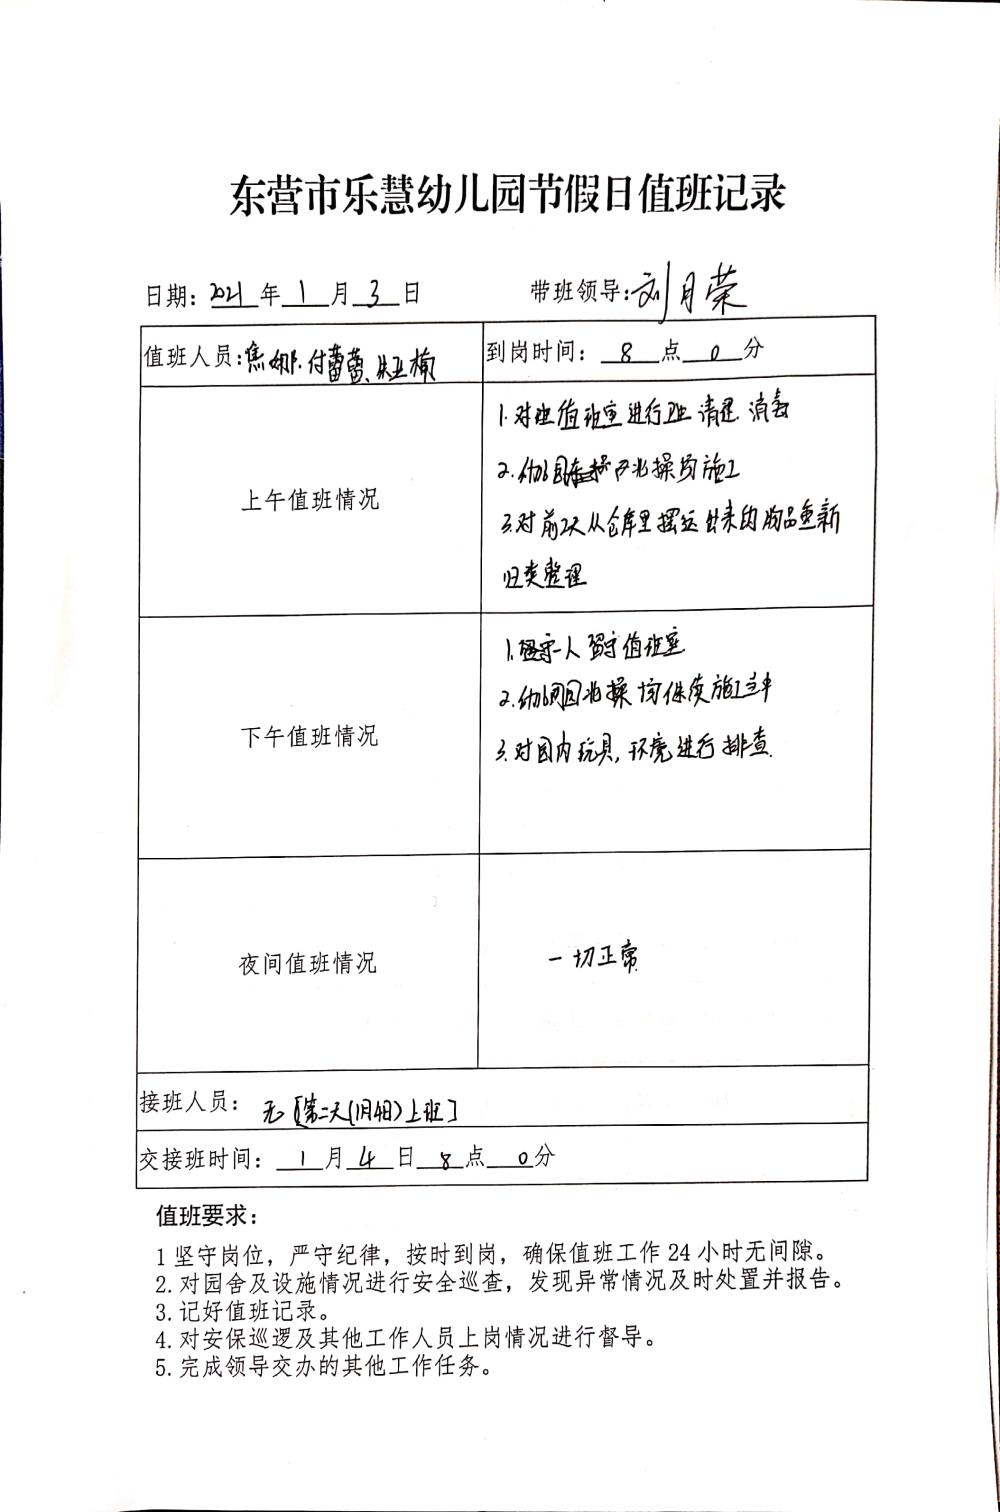 东营市乐慧幼儿园节假日值班记录
日期: 2021 年 1 月 3 日 带班领导: 刘月荣
值班人员: 焦娜、付蕾蕾、朱亚楠 到岗时间: 8 点 0 分
上午值班情况
1. 对值班室进行 清理 消毒
2. 幼儿园 北操场施工
3. 对前2天从仓库里搬运出来的物品重新
归类整理
下午值班情况
1. 一人留守值班室
2. 幼儿园北操场继续施工中
3. 对园内玩具, 环境进行排查.
夜间值班情况
一切正常
接班人员: 无[第二天(1月4日)上班]
交接班时间: 1 月 4 日 8 点 0 分
值班要求:
1 坚守岗位，严守纪律，按时到岗，确保值班工作 24 小时无间隙。
2. 对园舍及设施情况进行安全巡查，发现异常情况及时处置并报告。
3. 记好值班记录。
4. 对安保巡逻及其他工作人员上岗情况进行督导。
5. 完成领导交办的其他工作任务。